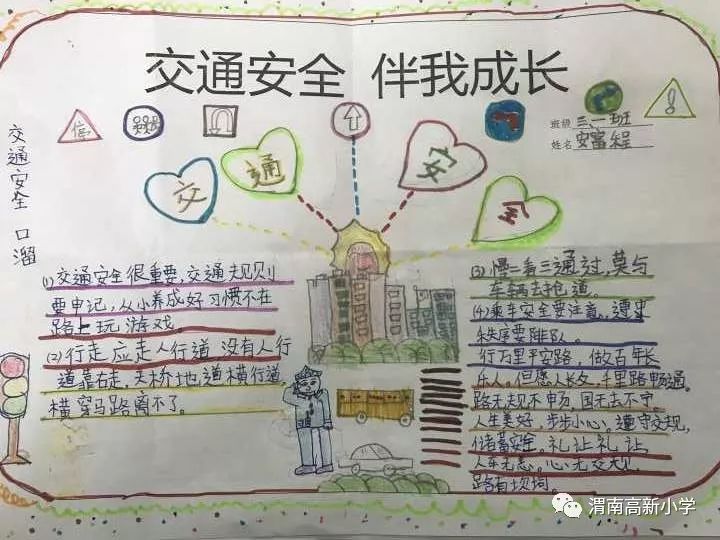 交通安全 伴我成长
停
班级 三、一班
姓名 安富程
交通安全口溜
交
通
安
全
(1)交通安全很重要,交通规则
要牢记,从小养成好习惯不在
路上玩游戏
(2)行走应走人行道 没有人行
道靠右走,天桥地道横行道,
横穿马路离不了。
(3)慢二看三通过,莫与
车辆去抢道。
(4)乘车安全要注意,遵守
秩序要排队。
行万里平安路,做百年长
乐人。但愿人长久,千里路畅通。
路无规不畅,国无法不宁。
人生美好,步步小心,遵守交规,
储蓄安全。礼让礼让,
人车无恙。心无交规,
路有坎坷。
渭南高新小学